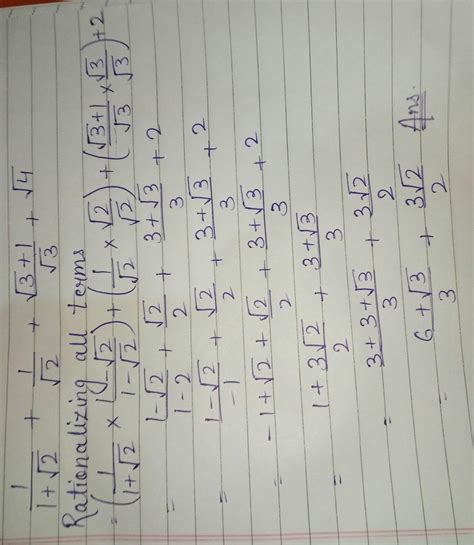 1/(1+√2) + 1/√2 + (√3+1)/√3 + √4
Rationalizing all terms
= (1/(1+√2) × (1-√2)/(1-√2)) + (1/√2 × √2/√2) + ((√3+1)/√3 × √3/√3) + 2
= (1-√2)/(1-2) + √2/2 + (3+√3)/3 + 2
= (1-√2)/(-1) + √2/2 + (3+√3)/3 + 2
= -1+√2 + √2/2 + (3+√3)/3 + 2
= 1 + 3√2/2 + (3+√3)/3
= (3+3+√3)/3 + 3√2/2
= (6+√3)/3 + 3√2/2 Ans.